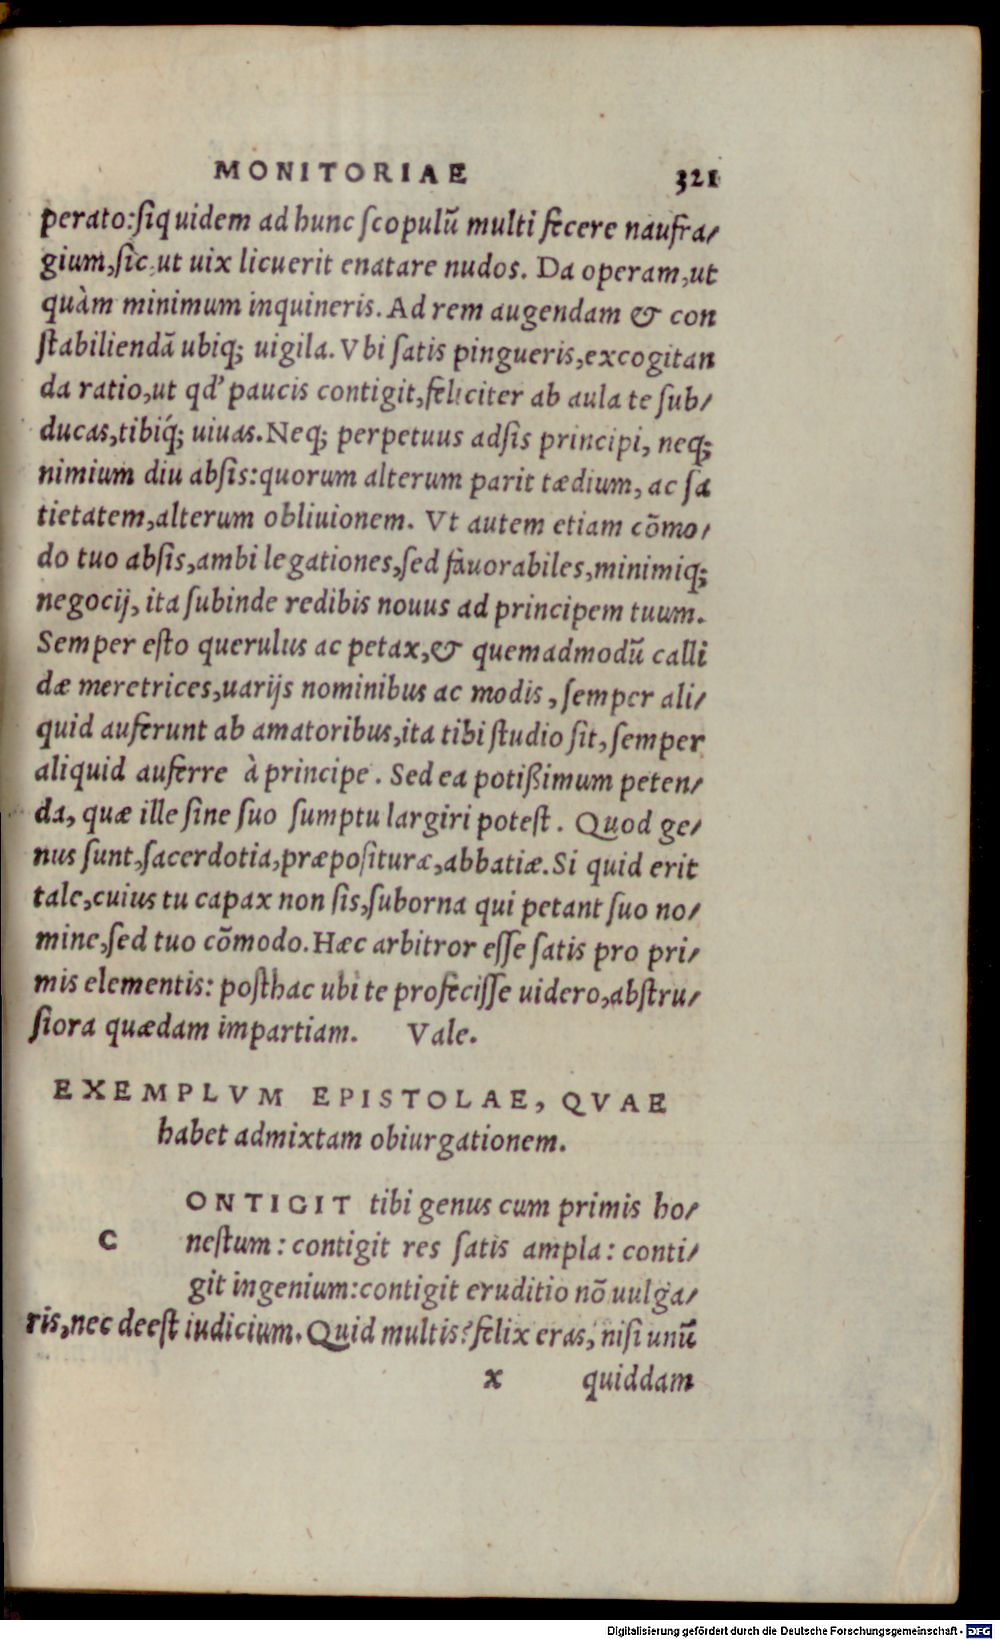 MONITORIAE 321
perato:siquidem ad hunc scopulū multi fecere naufra/
gium,sic,ut uix licuerit enatare nudos. Da operam,ut
quàm minimum inquineris. Ad rem augendam & con
stabiliendā ubiq; uigila. Vbi satis pingueris,excogitan
da ratio,ut qd' paucis contigit,feliciter ab aula te sub/
ducas,tibiq́; uiuas. Neq; perpetuus adsis principi, neq;
nimium diu absis:quorum alterum parit tædium, ac sa
tietatem,alterum obliuionem. Vt autem etiam cōmo/
do tuo absis,ambi legationes,sed fauorabiles,minimiq;
negocij, ita subinde redibis nouus ad principem tuum.
Semper esto querulus ac petax,& quemadmodū calli
dæ meretrices,uarijs nominibus ac modis, semper ali/
quid auferunt ab amatoribus,ita tibi studio sit, semper
aliquid auferre à principe. Sed ea potißimum peten/
da, quæ ille sine suo sumptu largiri potest. Quod ge/
nus sunt,sacerdotia,præposituræ,abbatiæ. Si quid erit
tale,cuius tu capax non sis,suborna qui petant suo no/
mine,sed tuo cōmodo. Hæc arbitror esse satis pro pri/
mis elementis: posthac ubi te profecisse uidero,abstru/
siora quædam impartiam. Vale.
EXEMPLVM EPISTOLAE, QVAE
habet admixtam obiurgationem.
CONTIGIT tibi genus cum primis ho/
nestum: contigit res satis ampla: conti/
git ingenium:contigit eruditio nō uulga/
ris,nec deest iudicium. Quid multis? felix eras, nisi unū
x quiddam
Digitalisierung gefördert durch die Deutsche Forschungsgemeinschaft - DFG